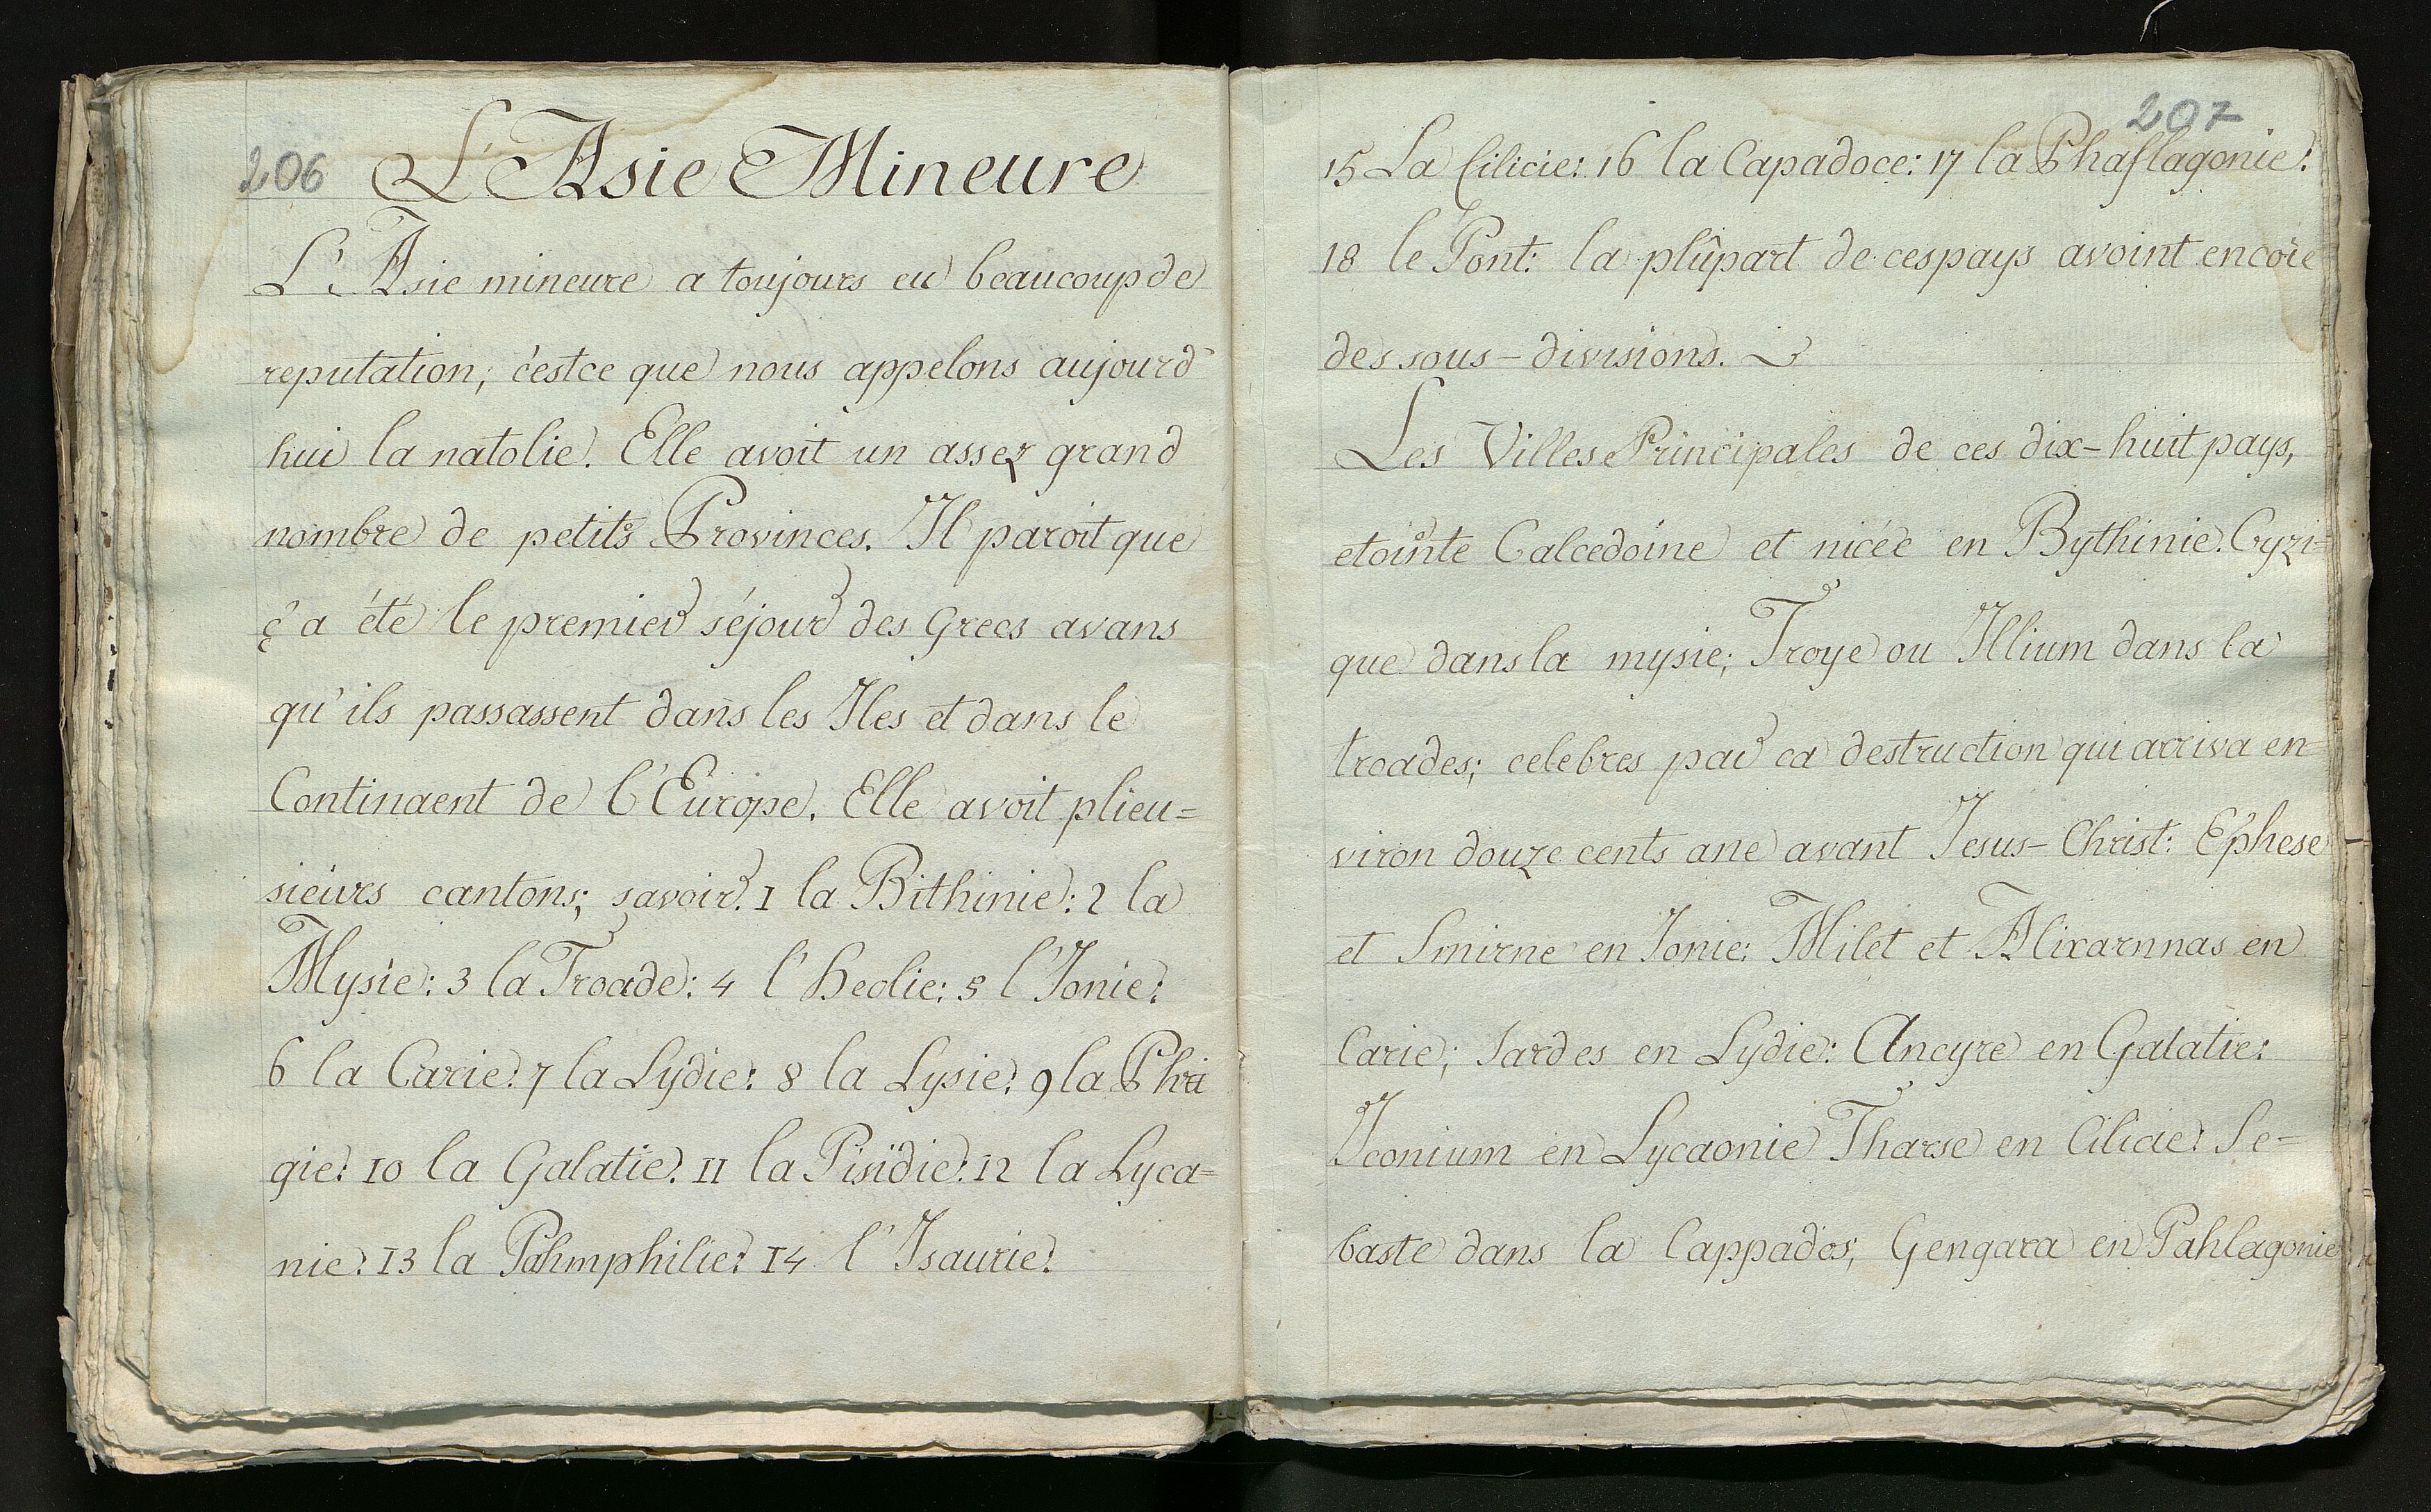 206
L'Asie Mineure
L'Asie mineure a toujours eu beaucoup de
reputation; c'est ce que nous appelons aujourd'
hui la natolie. Elle avoit un assez grand
nombre de petits Provinces. Il paroit que
ç'a été le premier séjour des Grecs avans
qu'ils passassent dans les Iles et dans le
Continaent de l'Europe. Elle avoit plieu=
sieurs cantons; savoir. 1 la Bithinie: 2 la
Mysie: 3 la Troade: 4 l'Heolie: 5 l'Ionie:
6 la Carie: 7 la Lydie: 8 la Lysie: 9 la Phri
gie: 10 la Galatie: 11 la Pisidie: 12 la Lyca=
nie: 13 la Pahmphilie: 14 l'Isaurie:
207
15 La Cilicie: 16 la Capadoce: 17 la Phaflagonie:
18 le Pont: la plûpart de ces pays avoint encore
des sous-divisions.
Les Villes Principales de ces dix-huit pays,
etointe Calcedoine et nicée en Bythinie. Cyzi=
que dans la mysie; Troye ou Illium dans la
troades; celebres par ca destruction qui arriva en=
viron douze cents ane avant Jesus-Christ: Ephese
et Smirne en Ionie: Milet et Alixarnnas en
Carie; Sardes en Lydie: Ancyre en Galatie:
Iconium en Lycaonie Tharse en Cilicie: Se=
baste dans la Cappados; Gengara en Pahlagonie